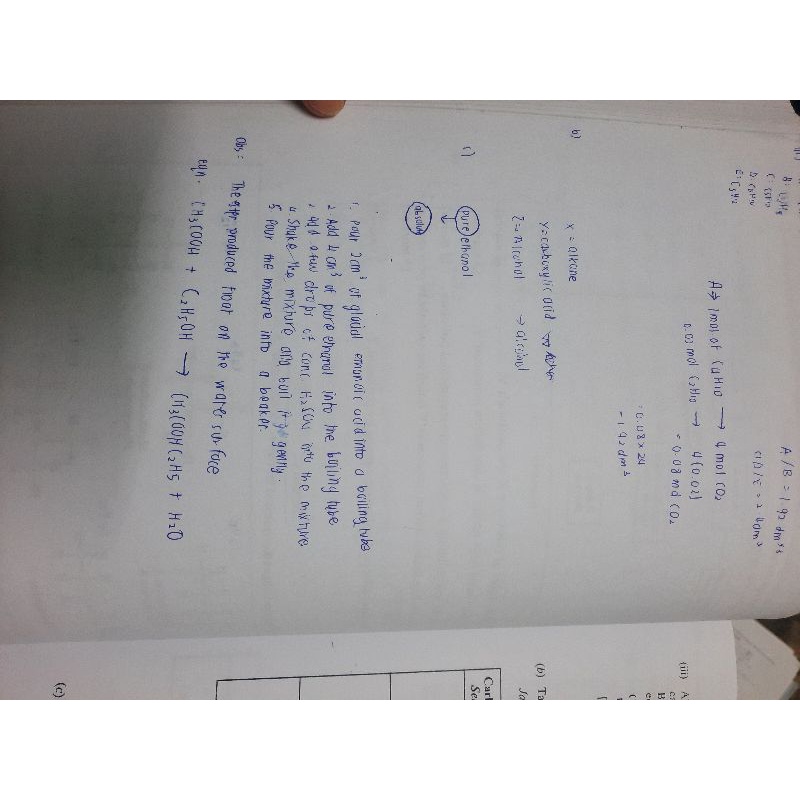 B: C4H8
C: C5H12
D: C5H10
E: C3H4
A/B = 1.92 dm^3
C/D/E = 2.40m^3
A → 1mol of C4H10 → 4 mol CO2
0.02 mol C4H10 → 4(0.02)
= 0.08 mol CO2
= 0.08 x 24
= 1.92 dm^3
b)
X = alkane
Y = carboxylic acid
Z = Alcohol → alcohol
c)
pure ethanol
absolute
1. Pour 2cm^3 of glacial ethanoic acid into a boiling tube
2. Add 4 cm^3 of pure ethanol into the boiling tube
Add a few drops of conc H2SO4 into the mixture
4. Shake the mixture and boil it gently.
5. Pour the mixture into a beaker.
Obs = The ester produced float on the water surface
eqn. CH3COOH + C2H5OH → CH3COOHC2H5 + H2O
(iii) A
B
(b) Ta
Carb
Se
(c)